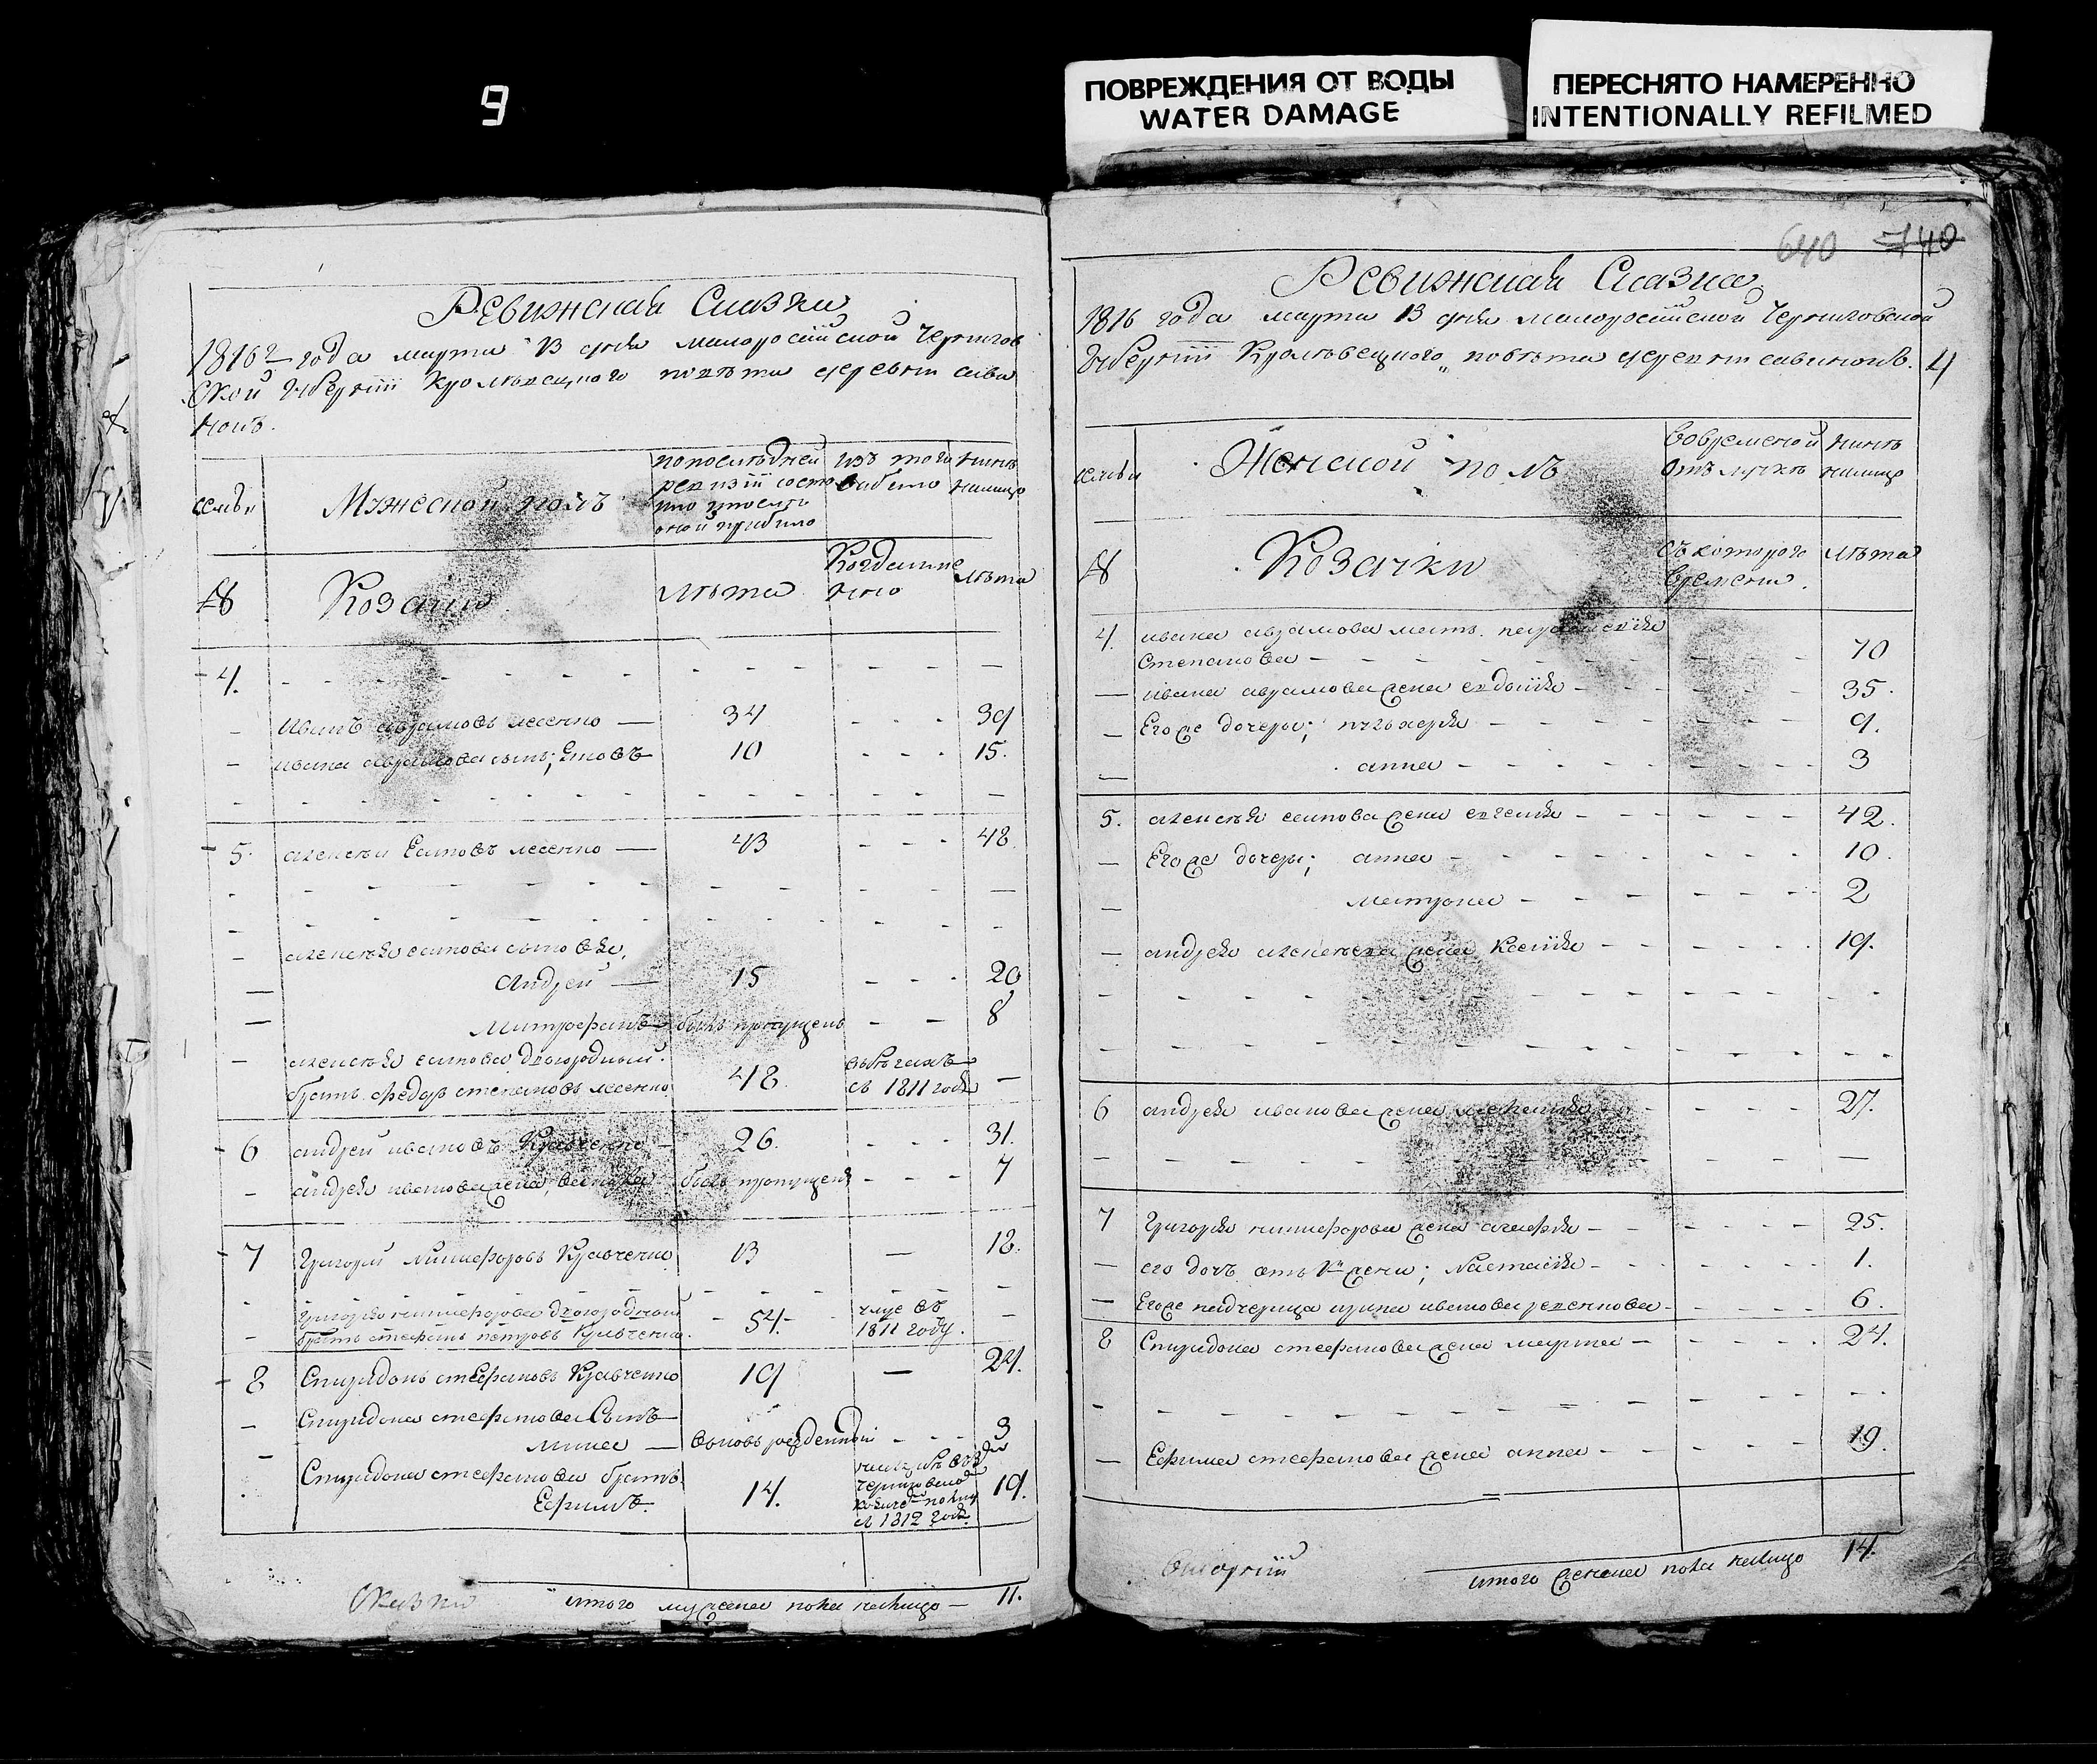 9
ПОВРЕЖДЕНИЯ ОТ ВОДЫ
WATER DAMAGE
ПЕРЕСНЯТО НАМЕРЕННО
INTENTIONALLY REFILMED
Ревижская Сказка
1816г года марта 13 дня малоросійской Чернигов
ской губерніи Кролевецкого повѣта деревни сави
нокъ.
семьи
Мужеской полъ
по последней
ревизіи состо
яло и послѣ
оной прибыло
изъ того
выбыло
нынѣ
налицо
№
Козаки
лѣта
Когда имен
но
лѣта
4.
Иванъ аврамовъ 34 39
ивана аврамова сынъ; 10 15.
5. алексѣй 43 48.
алексѣя сыновья,
андрей 15 20
Митрофанъ былъ пропущенъ 8
алексѣя двоюродный
братъ федоръ степановъ 48. въ бегахъ
съ 1811 года
6 андрей ивановъ Кравченко 26. 31.
андрея иванова былъ пропущенъ 7
7 Григорій никифоровъ Кравченко 13 18.
Григорія никифорова двоюродный
братъ стефанъ петровъ Кравченко. 54. умре въ
1811 году.
8 Спиридонъ стефановъ Кравченко 19 24.
Спиридона стефанова Сынъ
мина вновь рожденный 3
Спиридона стефанова братъ
Ефимъ. 14. 19.
съ 1812 года
итого мужеска пола налицо 11.
640 740
Ревижская Сказка
1816 года марта 13 дня малоросійской Черниговской
губерніи Кролевецкого повѣта деревни савинокъ. 4
семьи
Женской полъ
Во временной
отлучкѣ
нынѣ
налицо
№
Козачки
съ которого
времени.
лѣта
4. ивана аврамова мать
степанова 70
ивана аврамова жена евдокія 35.
Его же дочери; пелагея 9.
анна 3
5. алексѣя жена евгенія 42.
Его же дочери; анна 10.
матрона 2
андрея алексѣева жена Ксенія 19.
6 андрея иванова жена 27.
7 Григорія никифорова жена агафія 25.
его дочь отъ жены; Настасія 1.
Его же падчерица ирина иванова 6.
8 Спиридона стефанова жена марфа 24.
Ефима стефанова жена анна 19.
итого женска пола налицо 14.